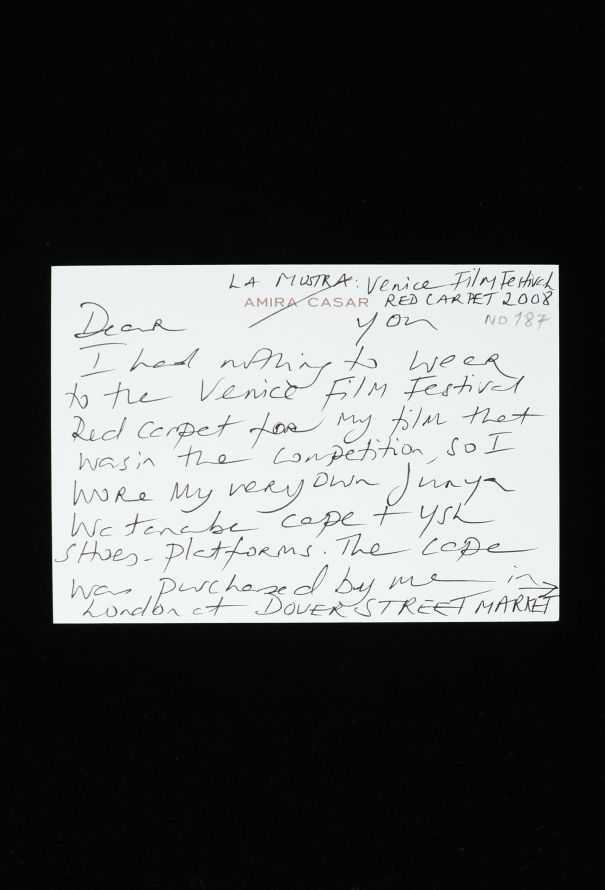 LA MOSTRA: Venice Film Festival
AMIRA CASAR RED CARPET 2008
Dear you NO 187
I had nothing to wear
to the Venice Film Festival
Red carpet for my film that
was in the competition, so I
wore my very own Junya
Watanabe cape + YSL
SHOES - platforms. The cape
was purchased by me in
London at DOVER STREET MARKET